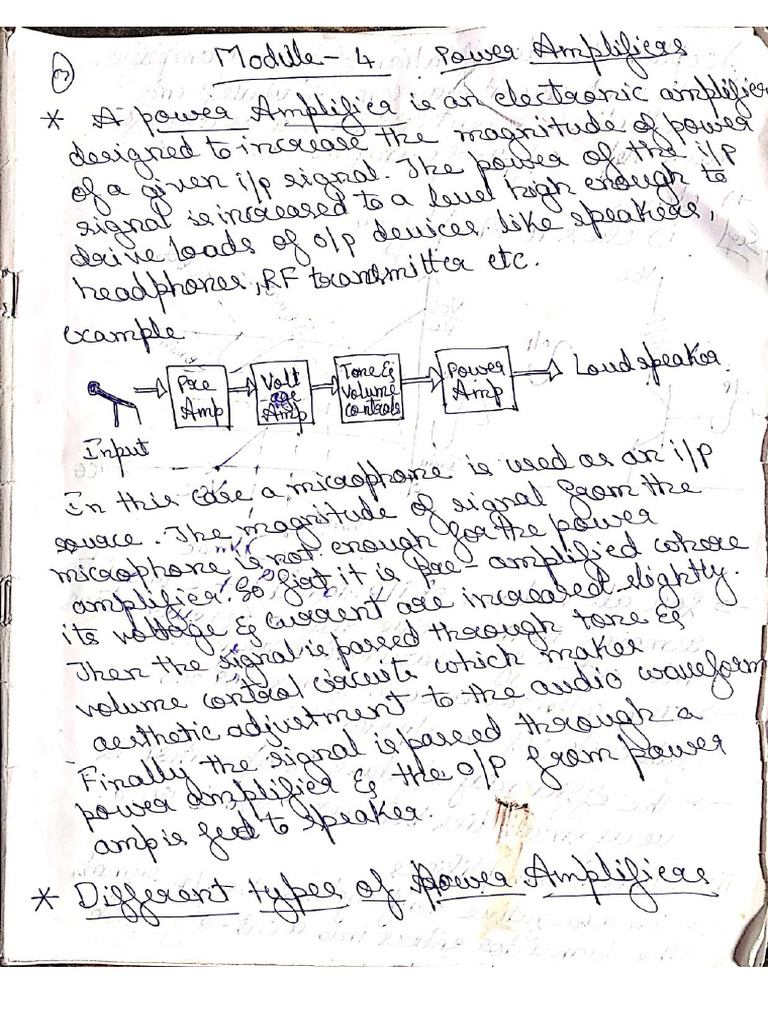 Module - 4 Power Amplifiers
* A power Amplifier is an electronic amplifier
designed to increase the magnitude of power
of a given i/p signal. The power of the i/p
signal is increased to a level high enough to
drive loads of o/p devices like speakers,
headphones, RF transmitter etc.
example
Pre Amp
Volt age Amp
Tone & Volume controls
Power Amp
Loudspeaker
Input
In this case a microphone is used as an i/p
source. The magnitude of signal from the
microphone is not enough for the power
amplifier. So first it is pre-amplified where
its voltage & current are increased slightly.
Then the signal is passed through tone &
volume control circuits which makes
aesthetic adjustment to the audio waveform
Finally the signal is passed through a
power amplifier & the o/p from power
amp is fed to speaker.
* Different types of Power Amplifiers